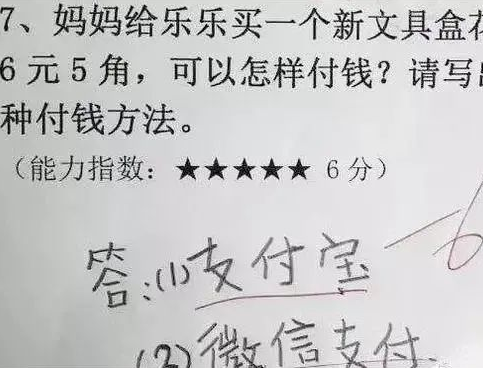 7、妈妈给乐乐买一个新文具盒花
6元5角，可以怎样付钱？请写出
种付钱方法。
（能力指数：★★★★★ 6分）
答:(1)支付宝 -6
(2)微信支付.